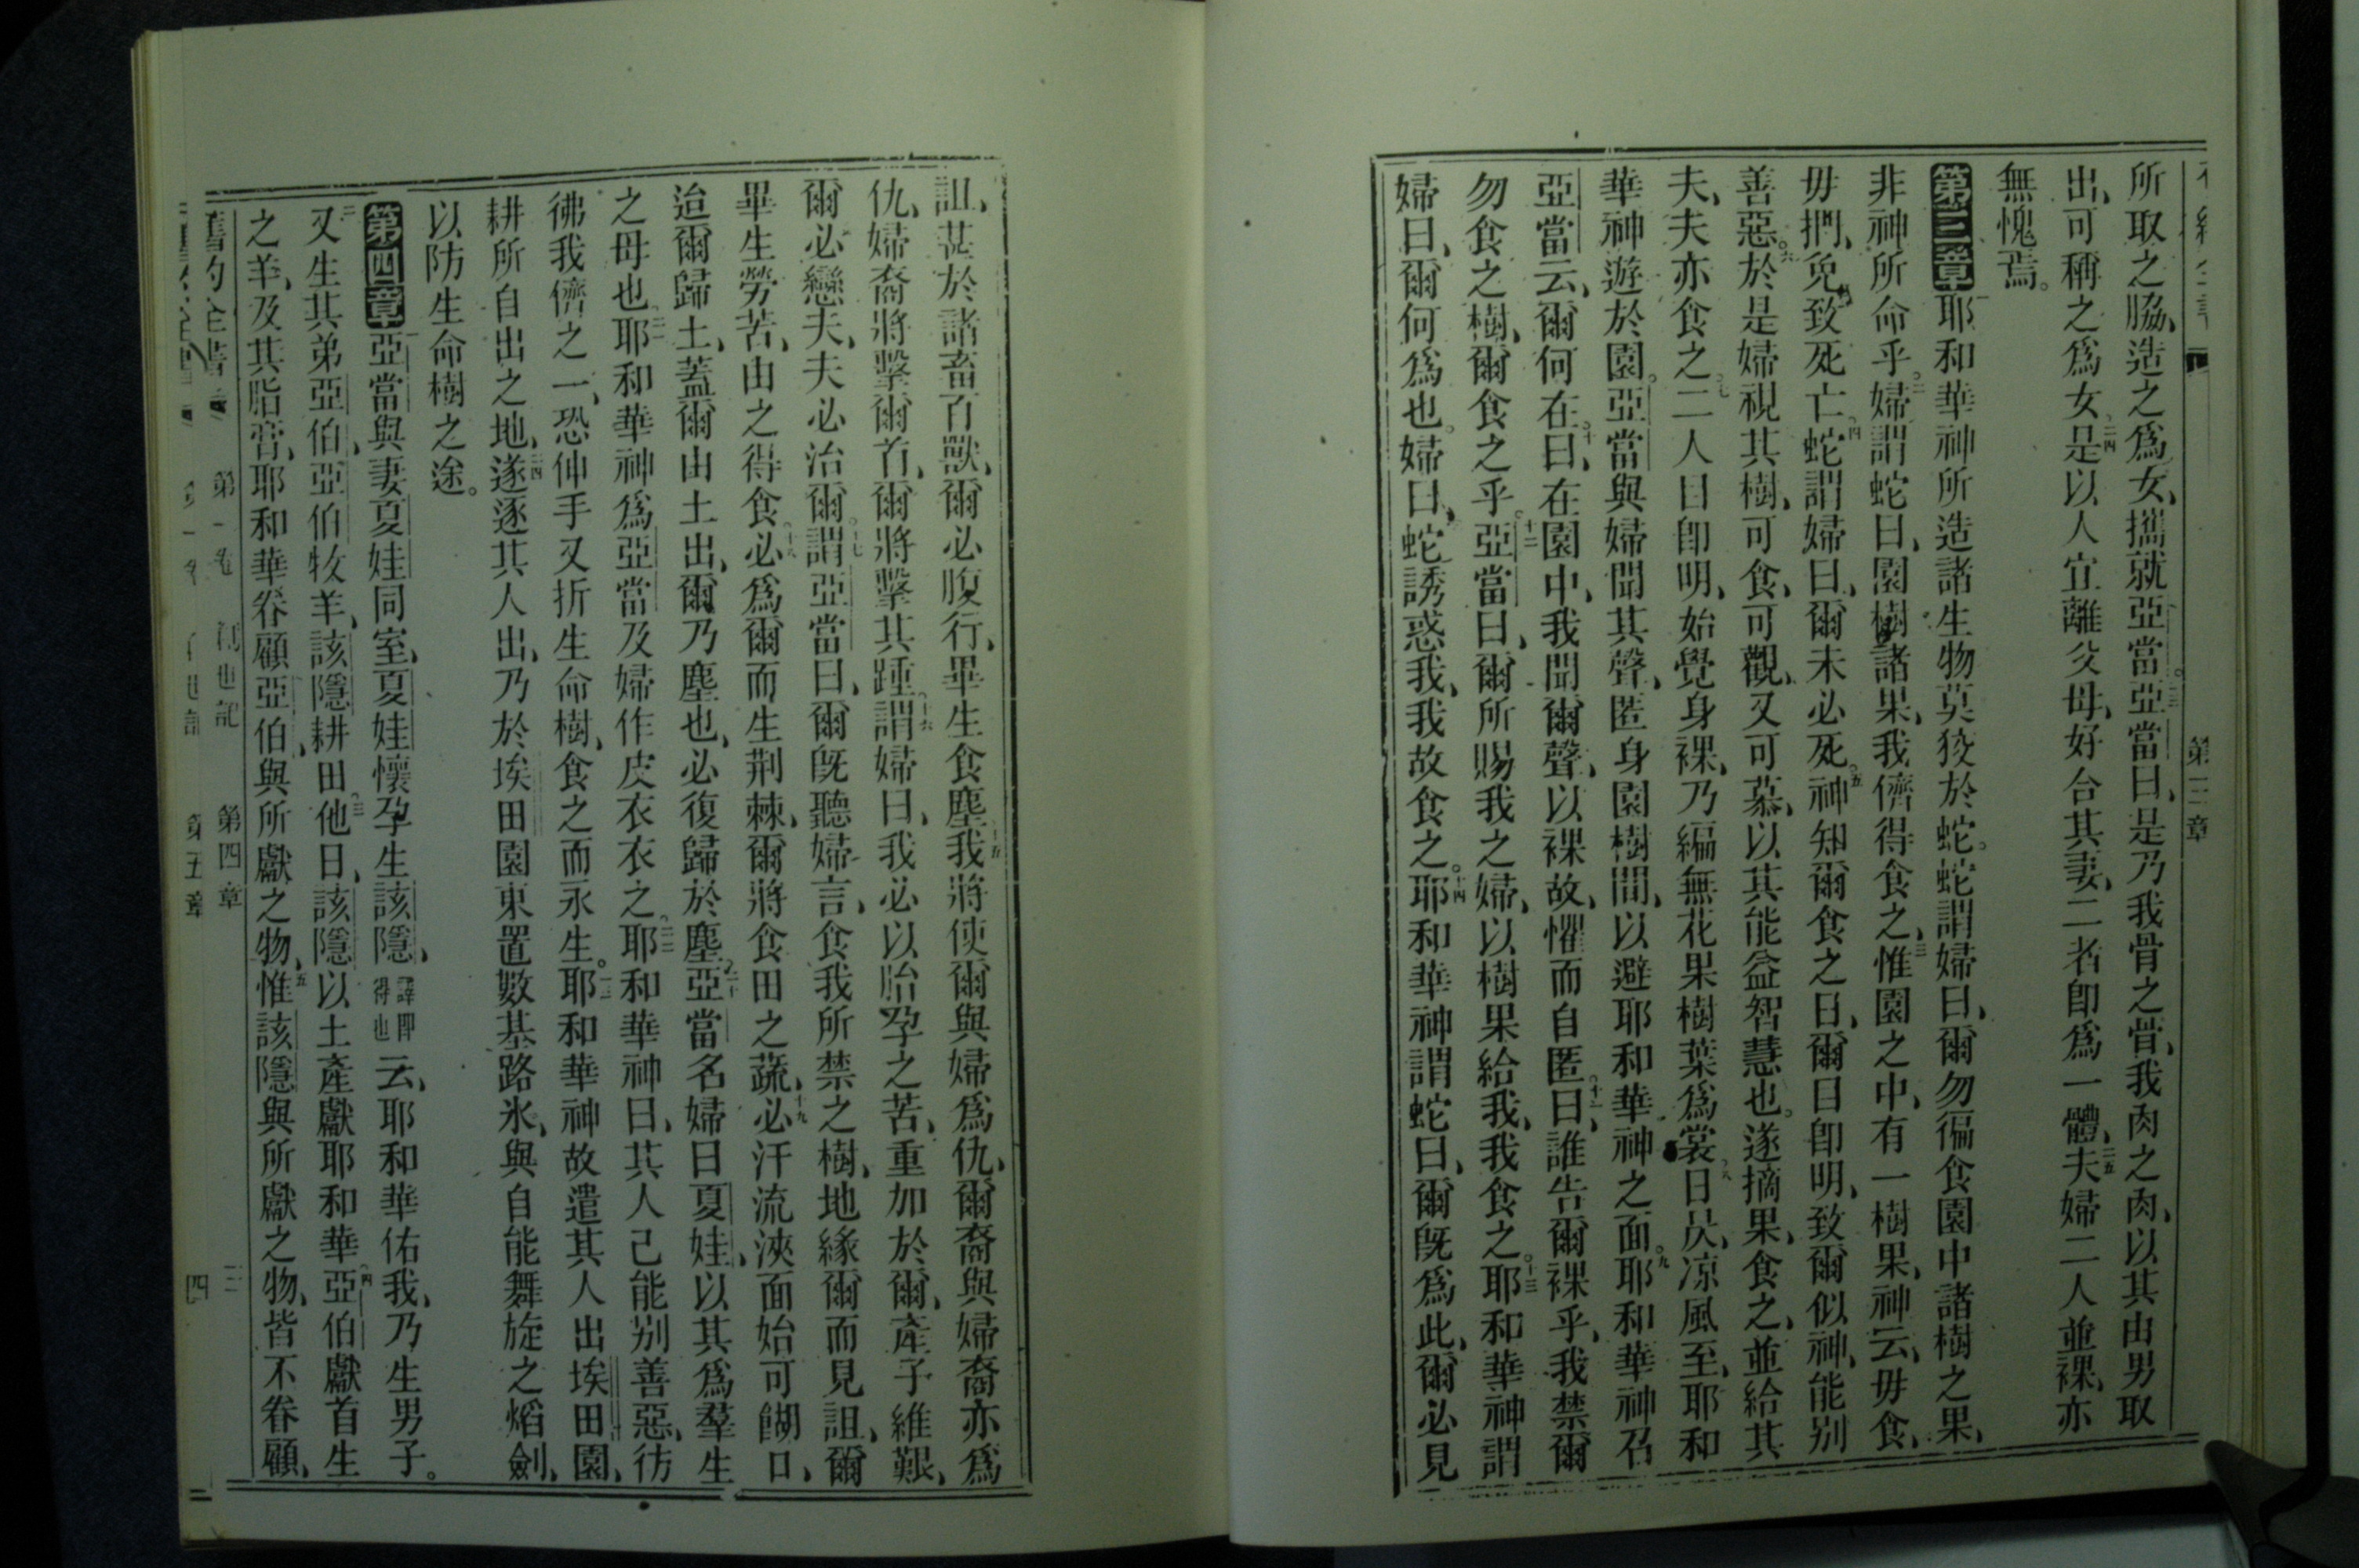 第三章
所取之脇、造之爲女、攜就亞當。二三亞當曰、是乃我骨之骨、我肉之肉、以其由男取
出、可稱之爲女、二四是以人宜離父母、好合其妻、二者卽爲一體、二五夫婦二人並裸、亦
無愧焉。
第三章一耶和華神所造諸生物莫狡於蛇。蛇謂婦曰、爾勿徧食園中諸樹之果、
非神所命乎。二婦謂蛇曰、園樹諸果、我儕得食之、三惟園之中、有一樹果、神云、毋食、
毋捫、免致死亡。四蛇謂婦曰、爾未必死。五神知爾食之日、爾目卽明、致爾似神、能別
善惡。六於是婦視其樹、可食、可觀、又可慕、以其能益智慧也。遂摘果、食之、並給其
夫、夫亦食之。七二人目卽明、始覺身裸、乃編無花果樹葉爲裳。八日昃、凉風至、耶和
華神遊於園。亞當與婦聞其聲、匿身園樹間、以避耶和華神之面。九耶和華神召
亞當云、爾何在。十曰、在園中、我聞爾聲、以裸故、懼而自匿。十一曰、誰告爾裸乎、我禁爾
勿食之樹、爾食之乎。十二亞當曰、爾所賜我之婦、以樹果給我、我食之。十三耶和華神謂
婦曰、爾何爲也。婦曰、蛇誘惑我、我故食之。十四耶和華神謂蛇曰、爾旣爲此、爾必見
詛、甚於諸畜百獸、爾必腹行、畢生食塵、十五我將使爾與婦爲仇、爾裔與婦裔亦爲
仇、婦裔將擊爾首、爾將擊其踵。十六謂婦曰、我必以胎孕之苦、重加於爾、產子維艱、
爾必戀夫、夫必治爾。十七謂亞當曰、爾旣聽婦言、食我所禁之樹、地緣爾而見詛、爾
畢生勞苦、由之得食。十八必爲爾而生荆棘、爾將食田之蔬、十九必汗流浹面始可餬口、
迨爾歸土、蓋爾由土出、爾乃塵也、必復歸於塵。二十亞當名婦曰夏娃、以其爲羣生
之母也。二一耶和華神爲亞當及婦作皮衣衣之。二二耶和華神曰、其人己能別善惡、彷
彿我儕之一、恐伸手又折生命樹、食之而永生。二三耶和華神故遣其人出埃田園、
耕所自出之地、二四遂逐其人出、乃於埃田園東置數基路氷、與自能舞旋之熖劍、
以防生命樹之途。
第四章一亞當與妻夏娃同室、夏娃懷孕生該隱、譯卽得也云、耶和華佑我、乃生男子。
二又生其弟亞伯、亞伯牧羊、該隱耕田。三他日、該隱以土產獻耶和華、四亞伯獻首生
之羊、及其脂膏、耶和華眷顧亞伯、與所獻之物、五惟該隱與所獻之物、皆不眷顧、
舊約全書 第一卷 創世記 第四章 三
第五章 四